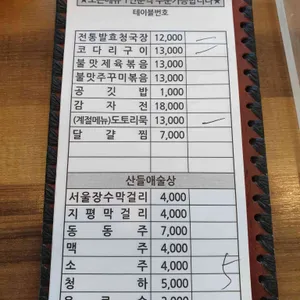 ★모든메뉴 1인분씩 주문가능합니다★
테이블번호
전통발효청국장 12,000
코다리구이 13,000
불맛제육볶음 13,000
불맛주꾸미볶음 13,000
공깃밥 1,000
감자전 18,000
(계절메뉴)도토리묵 13,000
달걀찜 7,000
산들애술상
서울장수막걸리 4,000
지평막걸리 4,000
동동주 7,000
맥주 4,000
소주 4,000
청하 5,000
음료수 2,000